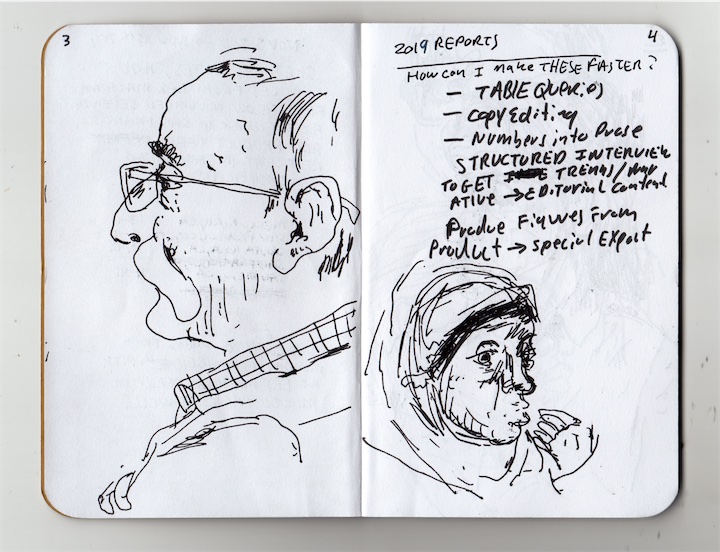 3
4
2019 REPORTS
How can I make THESE FASTER?
— TABLE Queries
— Copy Editing
— Numbers into Prose
STRUCTURED INTERVIEW
TO GET TRENDS/Narr
ATIVE → EDitorial Content
Produce Figures From
Product → Special Export